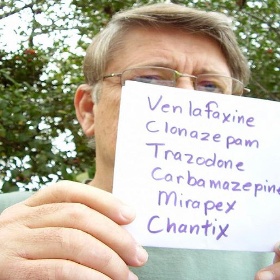 Venlafaxine
Clonazepam
Trazodone
Carbamazepine
Mirapex
Chantix